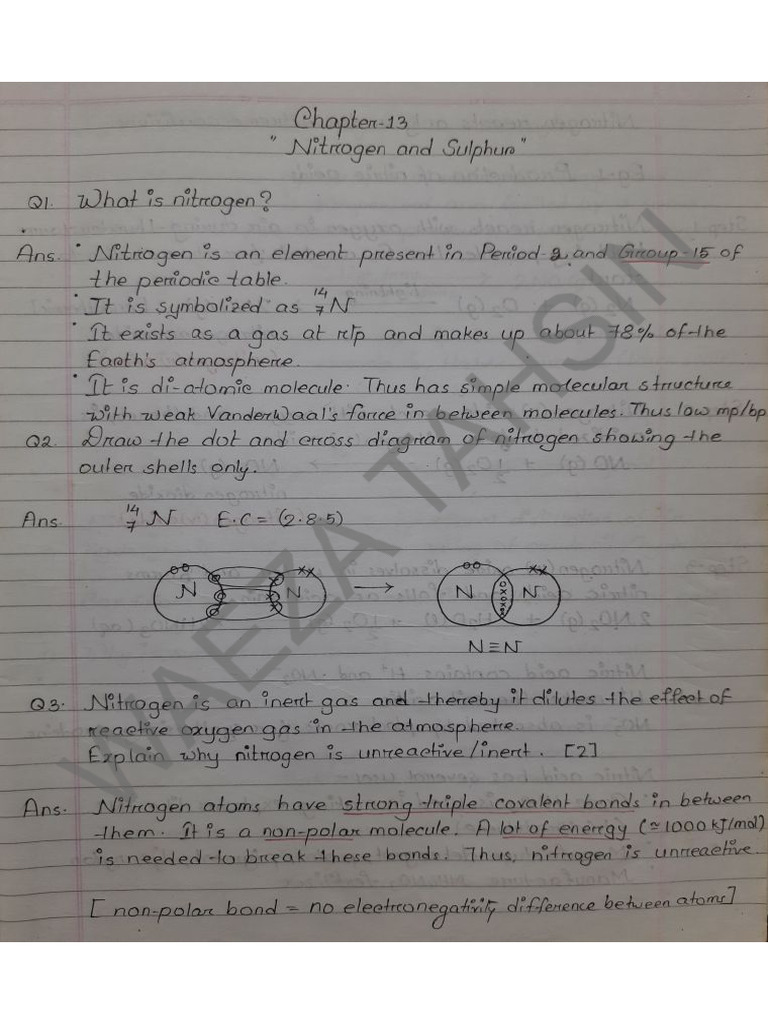 Chapter-13
"Nitrogen and Sulphur"
Q1. What is nitrogen?
Ans. • Nitrogen is an element present in Period-2 and Group-15 of
the periodic table.
• It is symbolized as ¹⁴₇N
• It exists as a gas at rtp and makes up about 78% of the
Earth's atmosphere.
• It is di-atomic molecule. Thus has simple molecular structure
with weak VanderWaal's force in between molecules. Thus low mp/bp
Q2. Draw the dot and cross diagram of nitrogen showing the
outer shells only.
Ans. ¹⁴₇N E.C = (2.8.5)
N N → N N
N≡N
Q3. Nitrogen is an inert gas and thereby it dilutes the effect of
reactive oxygen gas in the atmosphere.
Explain why nitrogen is unreactive/inert. [2]
Ans. Nitrogen atoms have strong triple covalent bonds in between
them. It is a non-polar molecule. A lot of energy (≃1000 kJ/mol)
is needed to break these bonds. Thus, nitrogen is unreactive.
[non-polar bond = no electronegativity difference between atoms]
WAEZA TAHSIN